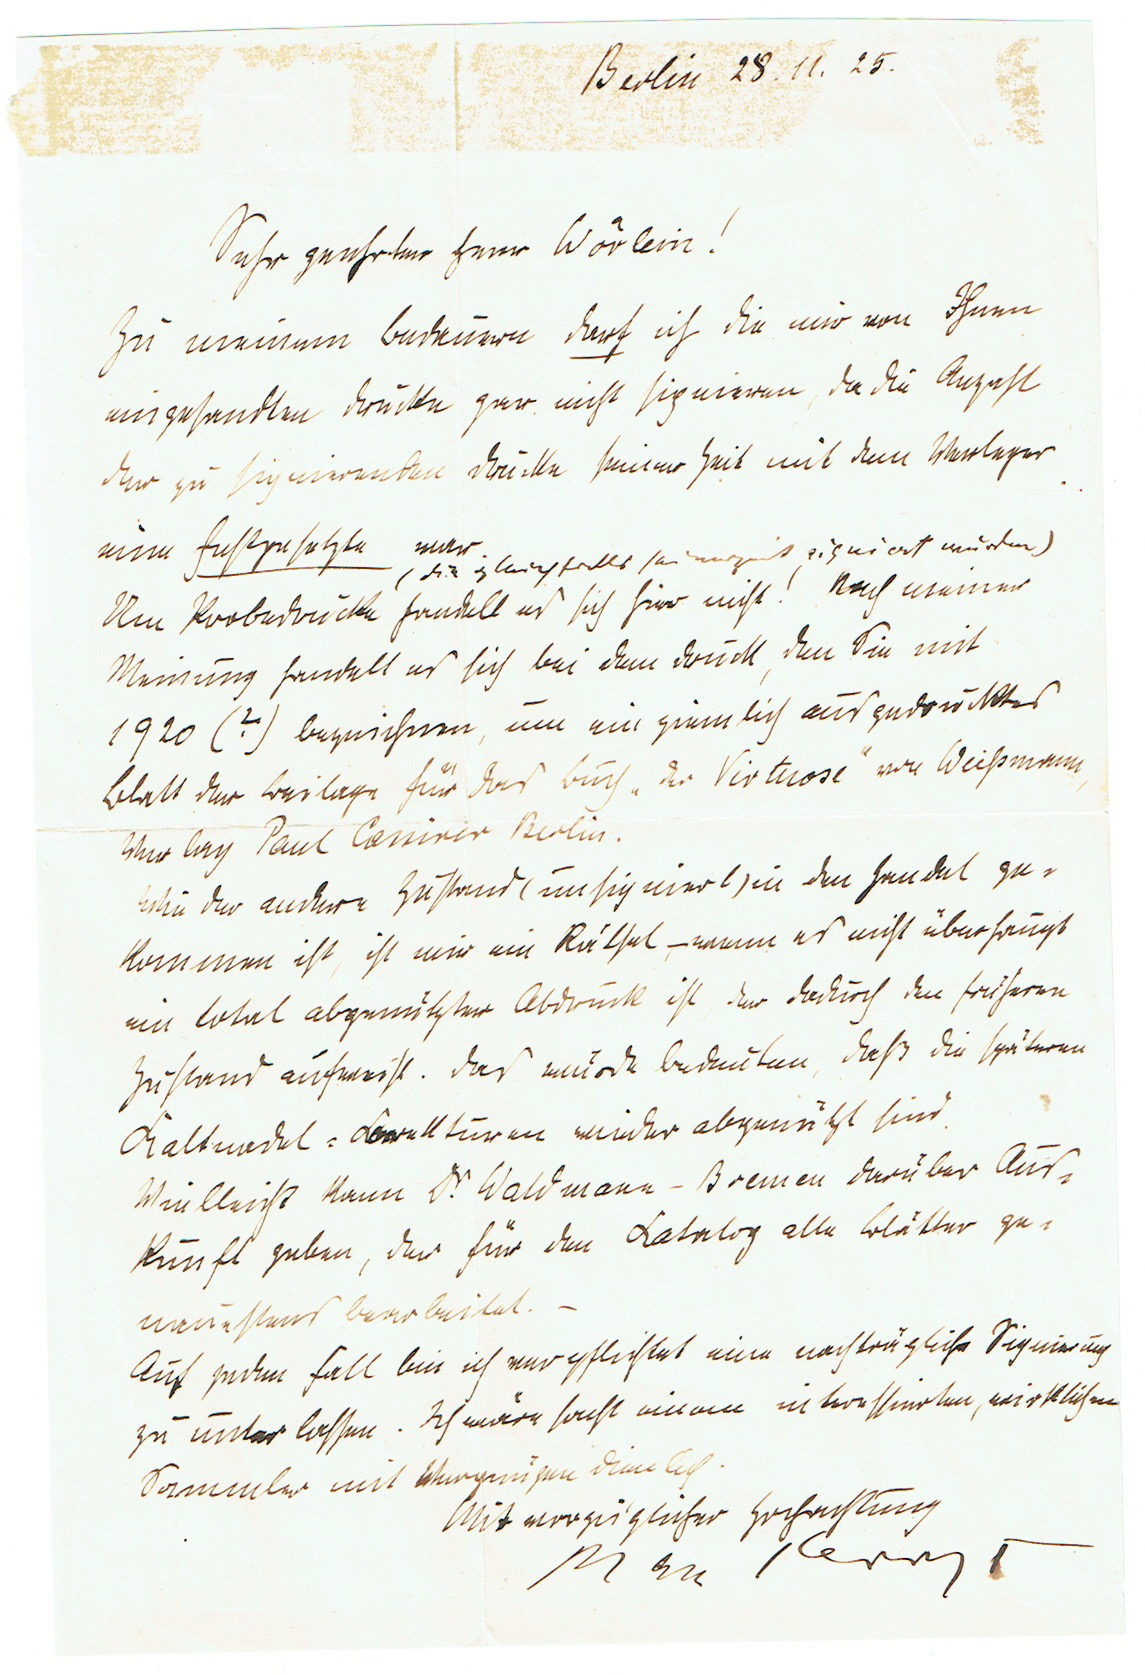 Berlin 28.11.25.
Sehr geehrter Herr Wörlein!
Zu meinem Bedauern darf ich die mir von Ihnen
eingesandten Drucke gar nicht signieren, da die Anzahl
der zu signierenden Drucke seiner Zeit mit dem Verleger
eine festgesetzte war.
(die gleichfalls seinerzeit signiert wurden)
Um Probedrucke handelt es sich hier nicht! Nach meiner
Meinung handelt es sich bei dem Druck, den Sie mit
1920 (?) bezeichnen, um ein ziemlich ausgedrucktes
Blatt der Beilage für das Buch „der Virtuose" von Weißmann,
Verlag Paul Cassirer Berlin.
Wie der andere Zustand (unsigniert) in den Handel ge-
kommen ist, ist mir ein Rätsel, – wenn es nicht überhaupt
ein total abgenützter Abdruck ist der dadurch den früheren
Zustand aufweist. Das würde bedeuten, daß die späteren
Kaltnadel-Korrekturen wieder abgenützt sind.
Vielleicht kann Dr Waldmann – Bremen darüber Aus-
kunft geben, der für den Katalog alle Blätter ge-
nauestens bearbeitet. –
Auf jeden Fall bin ich verpflichtet eine nachträgliche Signierung
zu unterlassen. Ich wäre sonst einem interessierten, wirklichen
Sammler mit Vergnügen dienlich.
Mit vorzüglicher Hochachtung